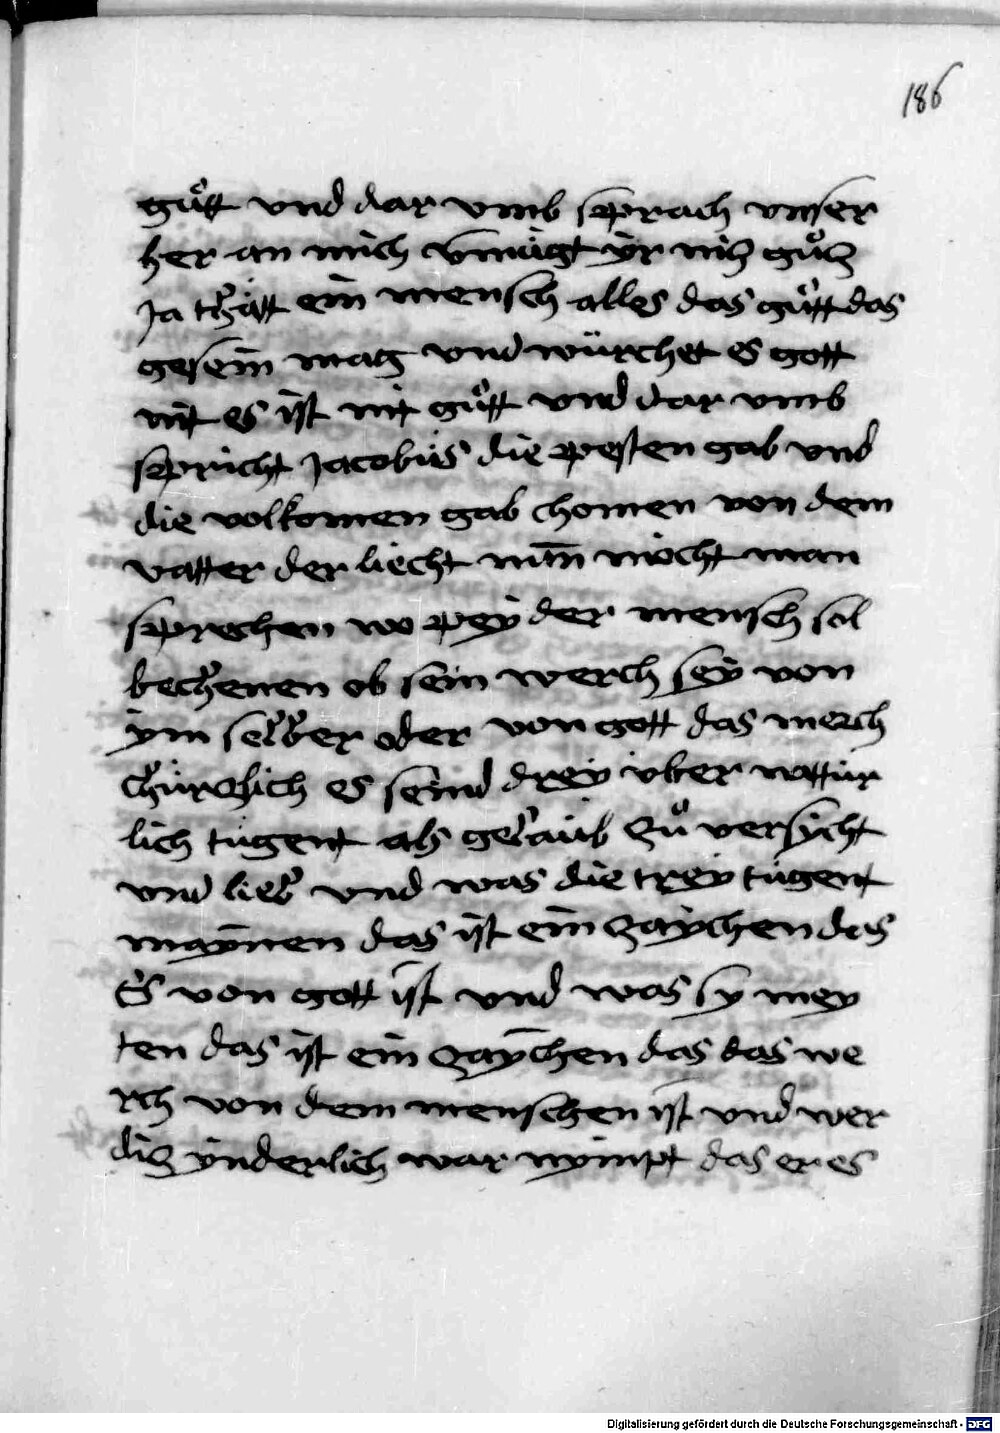 186
guͦtt vnd dar vmb sprach vnser
her an mich vmügt ÿr nih guͦcz
Ja thätt ein mensch alles das guͦtt das
gesein mag vnd würchet es gott
nit es ist nit guͦtt vnd dar vmb
spricht Jacobus die pesten gab vnd
die volkomen gab chomen von dem
vatter der liecht mm möcht man
sprechen wo peÿ der mensch sol
bechenen ob sein werch seÿ von
ÿm selber oder von gott das merch
chürczlich es seind dreÿ vber nattür
lich tugent als gelaub zuͦ versicht
vnd lieb vnd was die treÿ tugent
maÿnen das ist ein zaÿchen das
es von gott ist vnd was sy meÿ
ten das ist ein zaÿchen das das we
rch von dem menschen ist vnd wer
dicz ynderlich war nÿmpt das er es
Digitalisierung gefördert durch die Deutsche Forschungsgemeinschaft - DFG